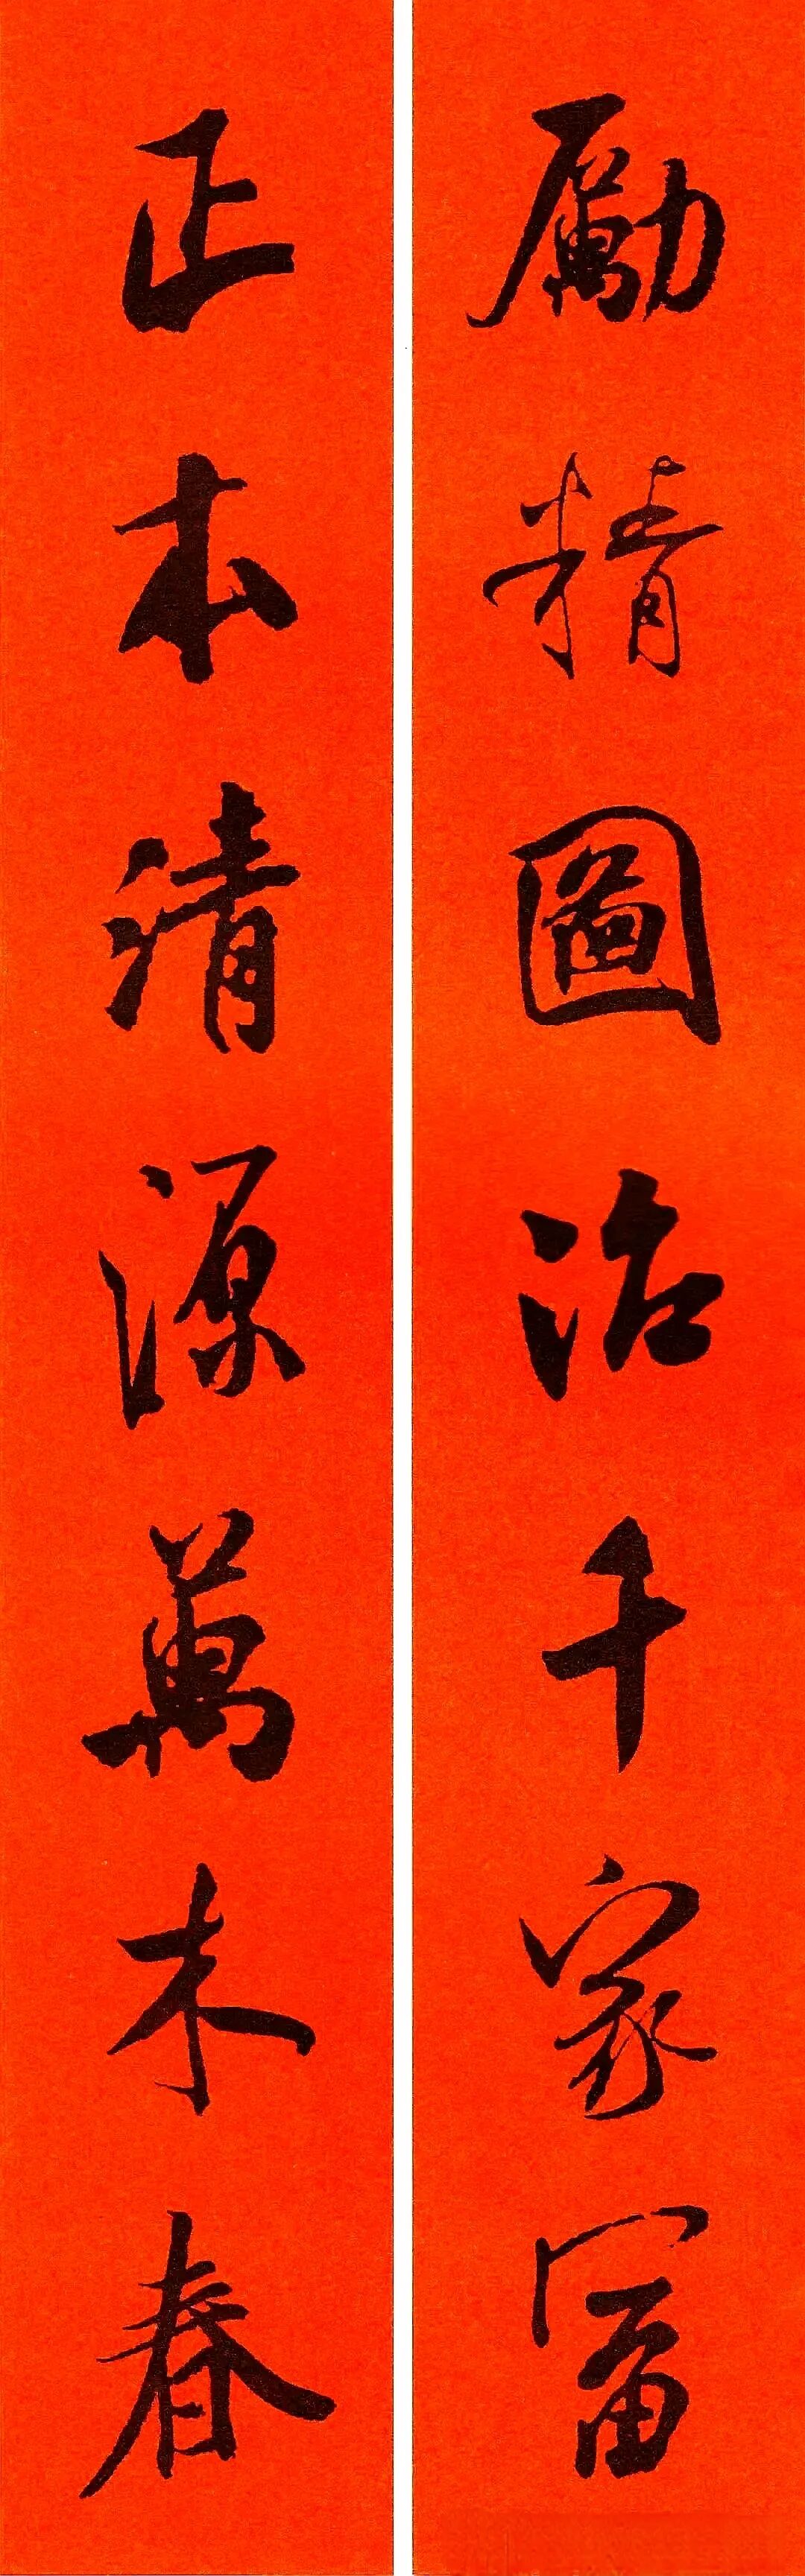 勵精圖治千家冨
正本清源萬木春